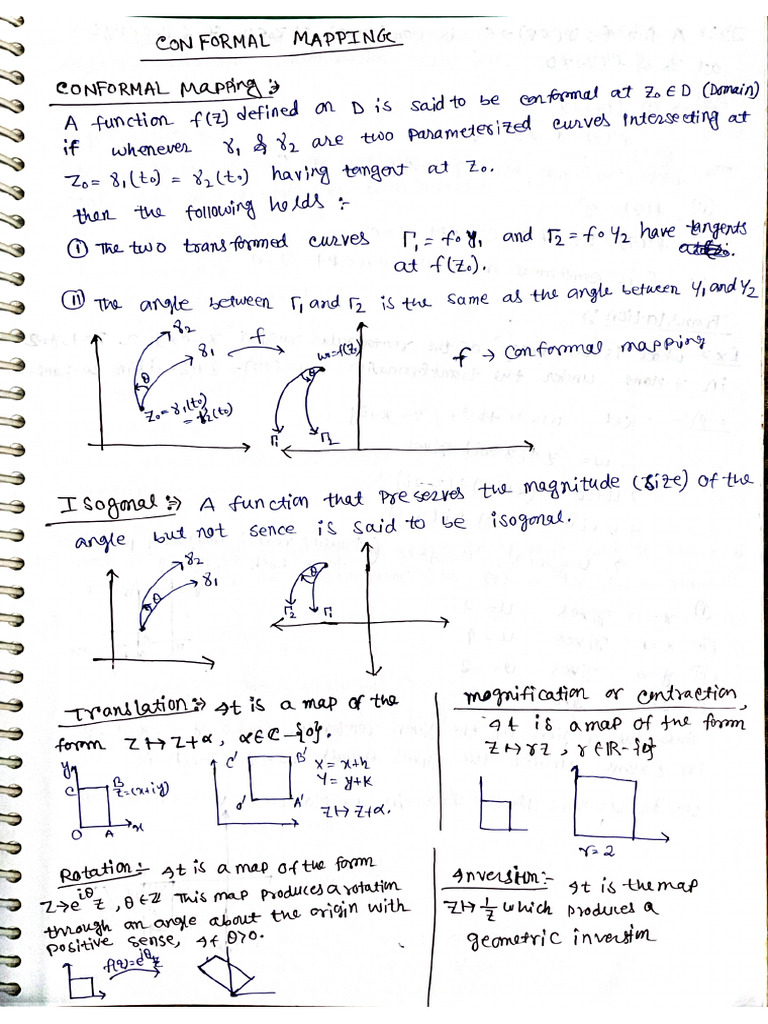 CONFORMAL MAPPING
CONFORMAL Mapping :→
A function f(z) defined on D is said to be conformal at z₀ ∈ D (Domain)
if whenever γ₁ & γ₂ are two parameterized curves intersecting at
z₀ = γ₁(t₀) = γ₂(t₀) having tangent at z₀.
then the following holds :-
(i) The two transformed curves Γ₁ = f∘γ₁ and Γ₂ = f∘γ₂ have tangents
at f(z₀).
(ii) The angle between Γ₁ and Γ₂ is the same as the angle between γ₁ and γ₂
γ₂
γ₁
f
θ
z₀ = γ₁(t₀)
= γ₂(t₀)
w=f(z₀)
θ
Γ₁
Γ₂
f → conformal mapping
Isogonal :→ A function that preserves the magnitude (size) of the
angle but not sence is said to be isogonal.
γ₂
γ₁
θ
θ
Γ₂
Γ₁
Translation :→ It is a map of the
form z ↦ z+α, α∈ℂ-{0}.
y
C
B
z=(x+iy)
O
A
x
C'
B'
A'
d'
X = x+h
Y = y+k
z ↦ z+α.
Magnification or contraction,
It is a map of the form
z ↦ rz, r ∈ ℝ-{0}
r=2
Rotation :- It is a map of the form
z → e^{iθ} z, θ ∈ Z This map produces a rotation
through an angle about the origin with
positive sense, If θ>0.
f(z)=e^{iθ}z
Inversion :- It is the map
z ↦ 1/z which produces a
geometric inversion